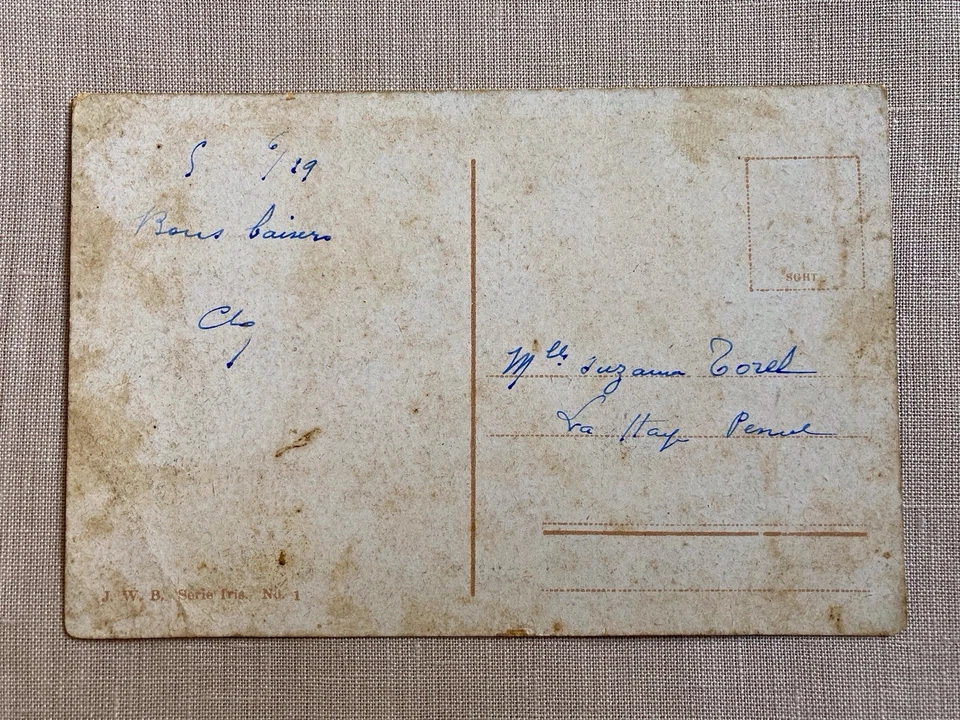 5 6/29
Bons baisers
SGHT
Mlle Suzanne Torel
La Hay Pesnel
J. W. B. Serie Iris. No. 1